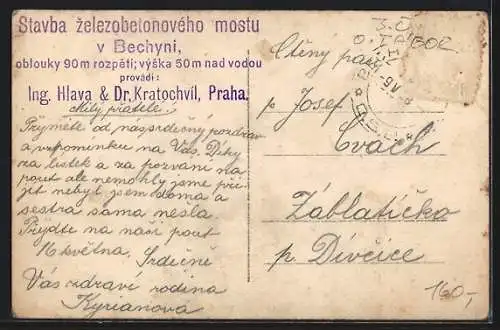 Stavba železobetonového mostu
v Bechyni,
oblouky 90m rozpětí; výška 50m nad vodou
provádí:
Ing. Hlava & Dr. Kratochvíl, Praha.
Milý příteli!
Přijměte od nás srdečný pozdrav
a vzpomínku na Vás. Díky
za lístek a za pozvání na
pouť ale nemohly jsme při-
jít nebyl jsem doma a
sestra sama nešla.
Přijďte na naší pouť
16 května, Srdečně
Vás zdraví rodina
Kyrianova
Ctěný pan
p. Josef
Cvach
Záblatíčko
p. Dívčice
TÁBOR
160,-